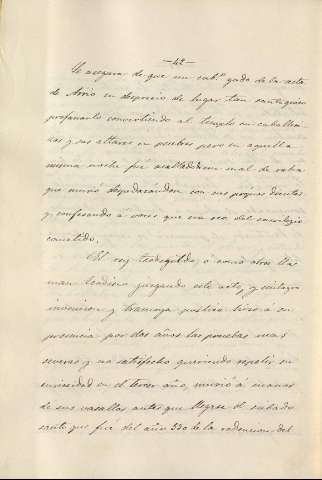 — 42 —
Se asegura de que un cab.º godo de la secta
de Arrio en desprecio de lugar tan santo quiso
profanarlo convirtiendo el templo en caballe
rizas y sus altares en pesebres pero en aquella
misma noche fué asaltado de un mal de rabia
que murió despedazandose con sus propios dientes
y confesando á voces que era reo del sacrilegio
cometido.
El rey Teodiselo, ó como otros lla
man juzgando este acto, y milagro
invencion y tramoya pusieron en su
presencia por dos años las pruebas mas
severas y no satisfecho queriendo repetir su
curiosidad en el tercer año, murió á manos
de sus vasallos antes que llegase el sabado
santo que fué del año 550 de la redencion del